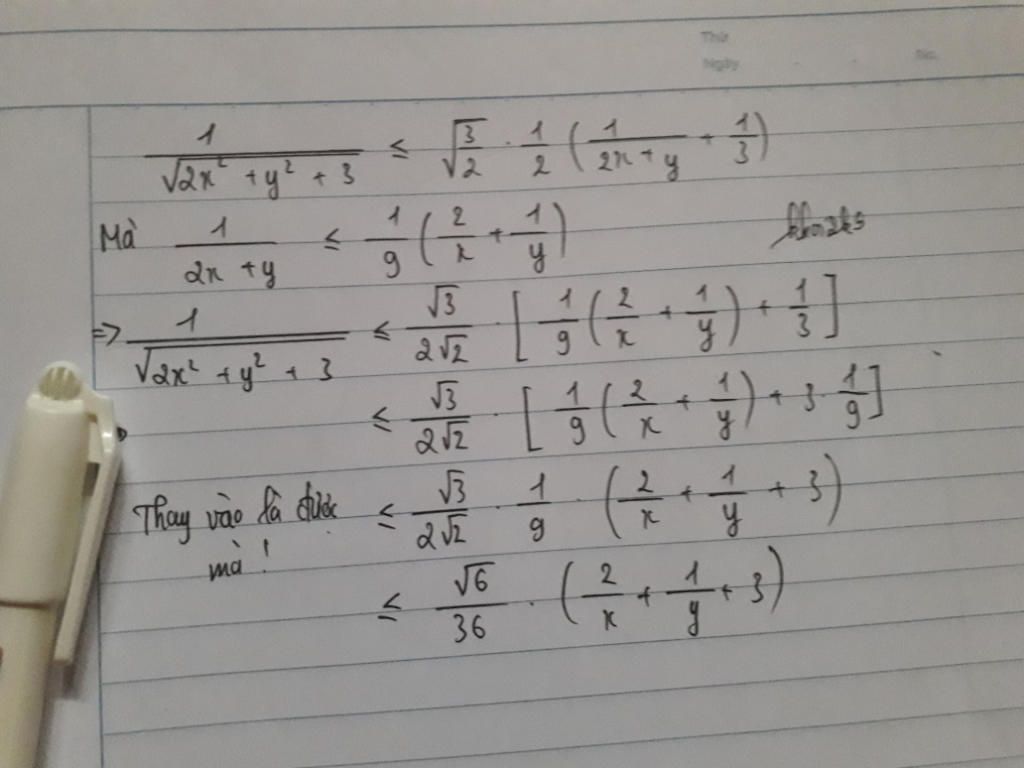 Thứ
Ngày No.
1/√(2x² + y² + 3) ≤ √(3/2) · 1/2 (1/(2x + y) + 1/3)
Mà 1/(2x + y) ≤ 1/9 (2/x + 1/y)
=> 1/√(2x² + y² + 3) ≤ √3/(2√2) · [1/9 (2/x + 1/y) + 1/3]
≤ √3/(2√2) · [1/9 (2/x + 1/y) + 3 · 1/9]
Thay vào là được ≤ √3/(2√2) · 1/9 · (2/x + 1/y + 3)
mà !
≤ √6/36 · (2/x + 1/y + 3)